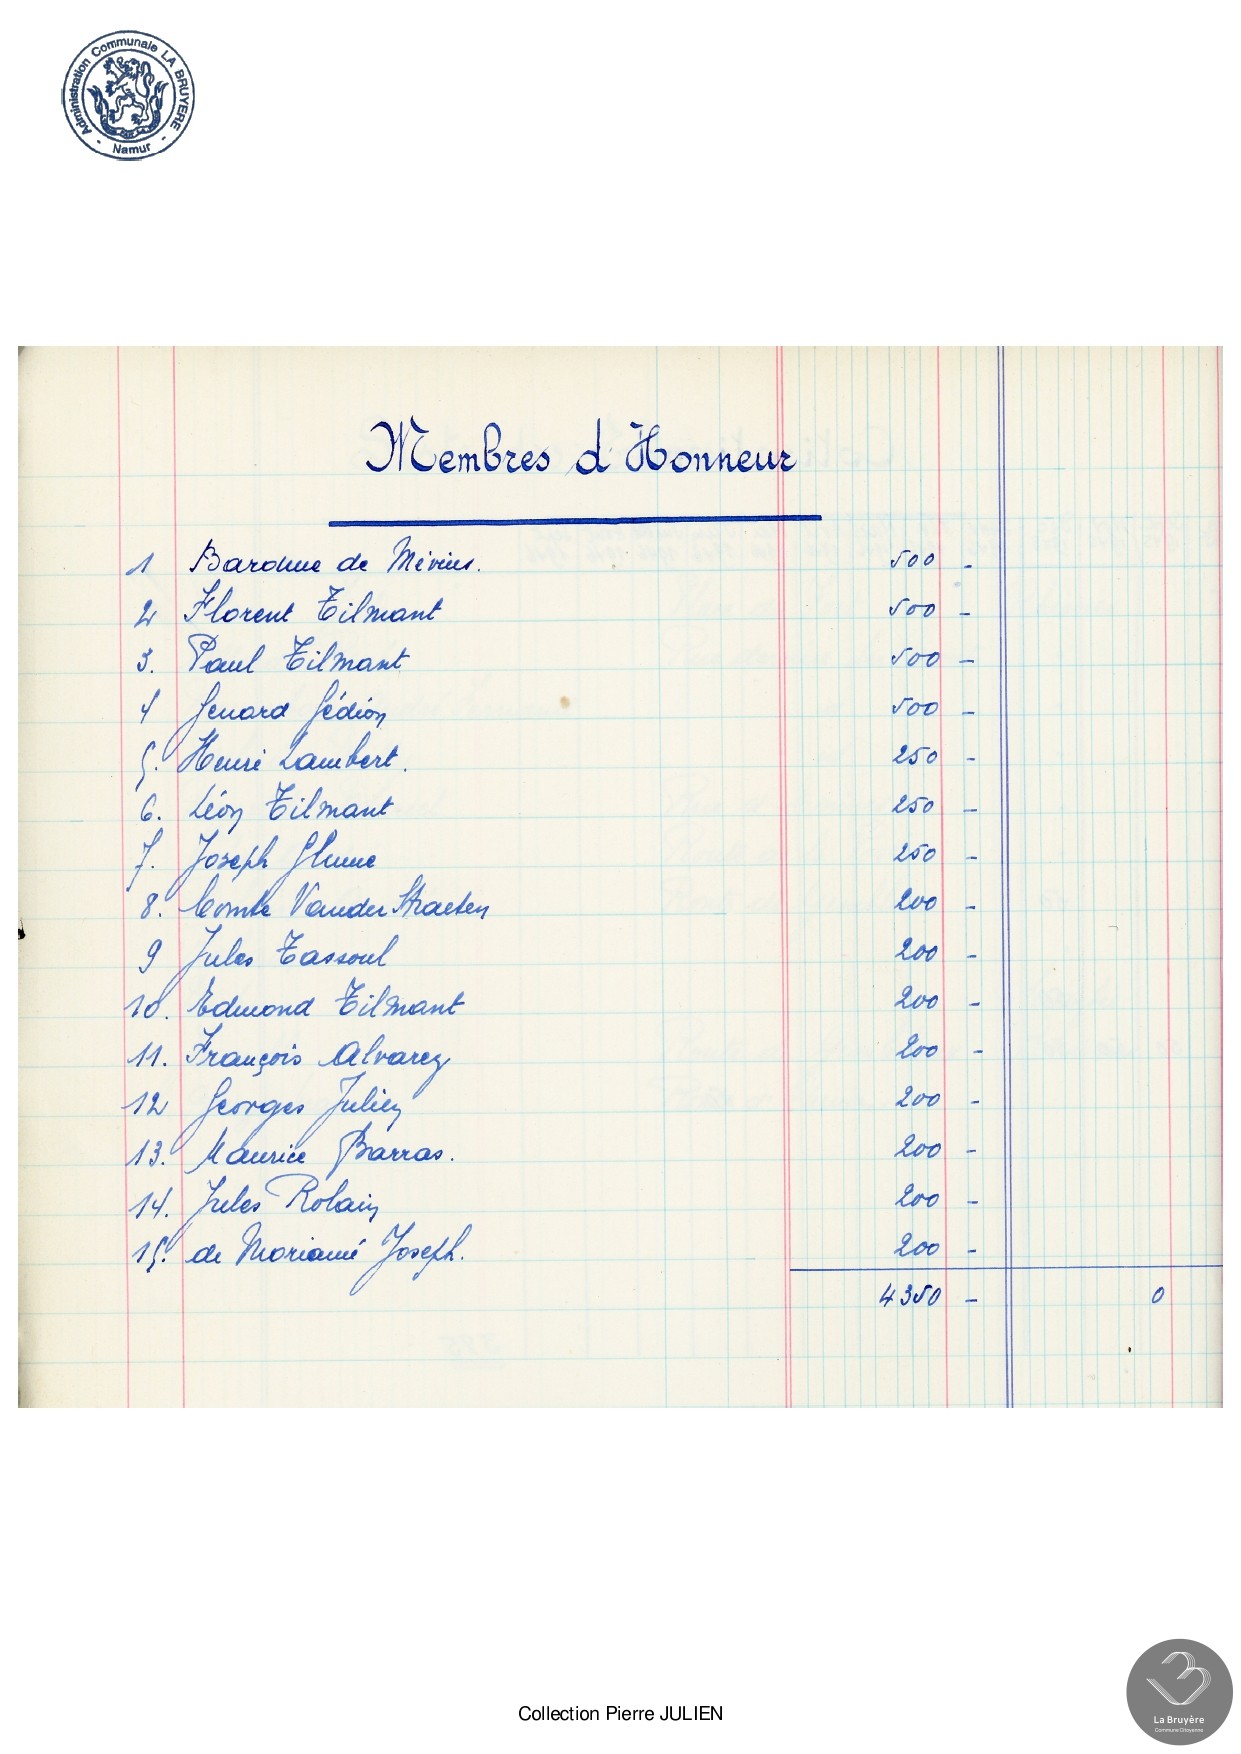 Administration Communale LA BRUYERE
- Namur -
Membres d'Honneur
1 Baronne de Mévius. 500 -
2 Florent Tilmant 500 -
3. Paul Tilmant 500 -
4 Genard Gédéon 500 -
5. Henri Lambert. 250 -
6. Léon Tilmant 250 -
7. Joseph 250 -
8. Comte Vander Straeten 200 -
9 Jules Tassoul 200 -
10. Edmond Tilmant 200 -
11. François Alvarez 200 -
12 Georges Julien 200 -
13. Maurice Barras. 200 -
14. Jules Rolain 200 -
15. de Moriamé Joseph. 200 -
4350 - 0
Collection Pierre JULIEN
La Bruyère
Commune Citoyenne